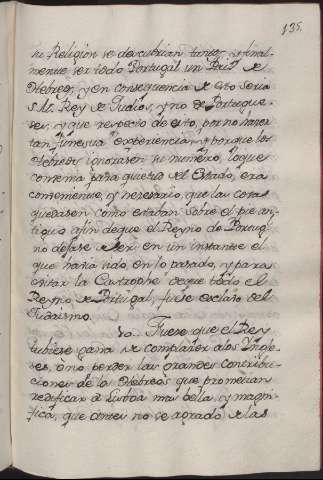 135.
su Religion se descubrian tantos, y final-
mente ser todo Portugal un Pais de
Hebreos, y en consequencia de esto seria
S. M. Rey de Judios, y no de Portugue-
ses, y que respecto de esto, por no inten-
tar, una experiencia, y porque los
Hebreos ignorasen su numero, lo que
convenia para quietud del Estado, era
conveniente, y necesario, que las cosas
quedasen como estaban sobre el pie an-
tiguo, afin de que el Reyno de Portugal
no dejase de ser en un instante el
que havia sido, en lo pasado, y para
evitar la Catastrophe de que todo el
Reyno de Portugal, fuese esclavo del
Judaismo.
Fuese que el Rey
tubiese gana de complacer a los Yngle-
ses, o no perder las grandes contribu-
ciones de los Hebreos que prometian
redificar a Lisboa mas bella, y magni-
fica, que antes no se agrado de las